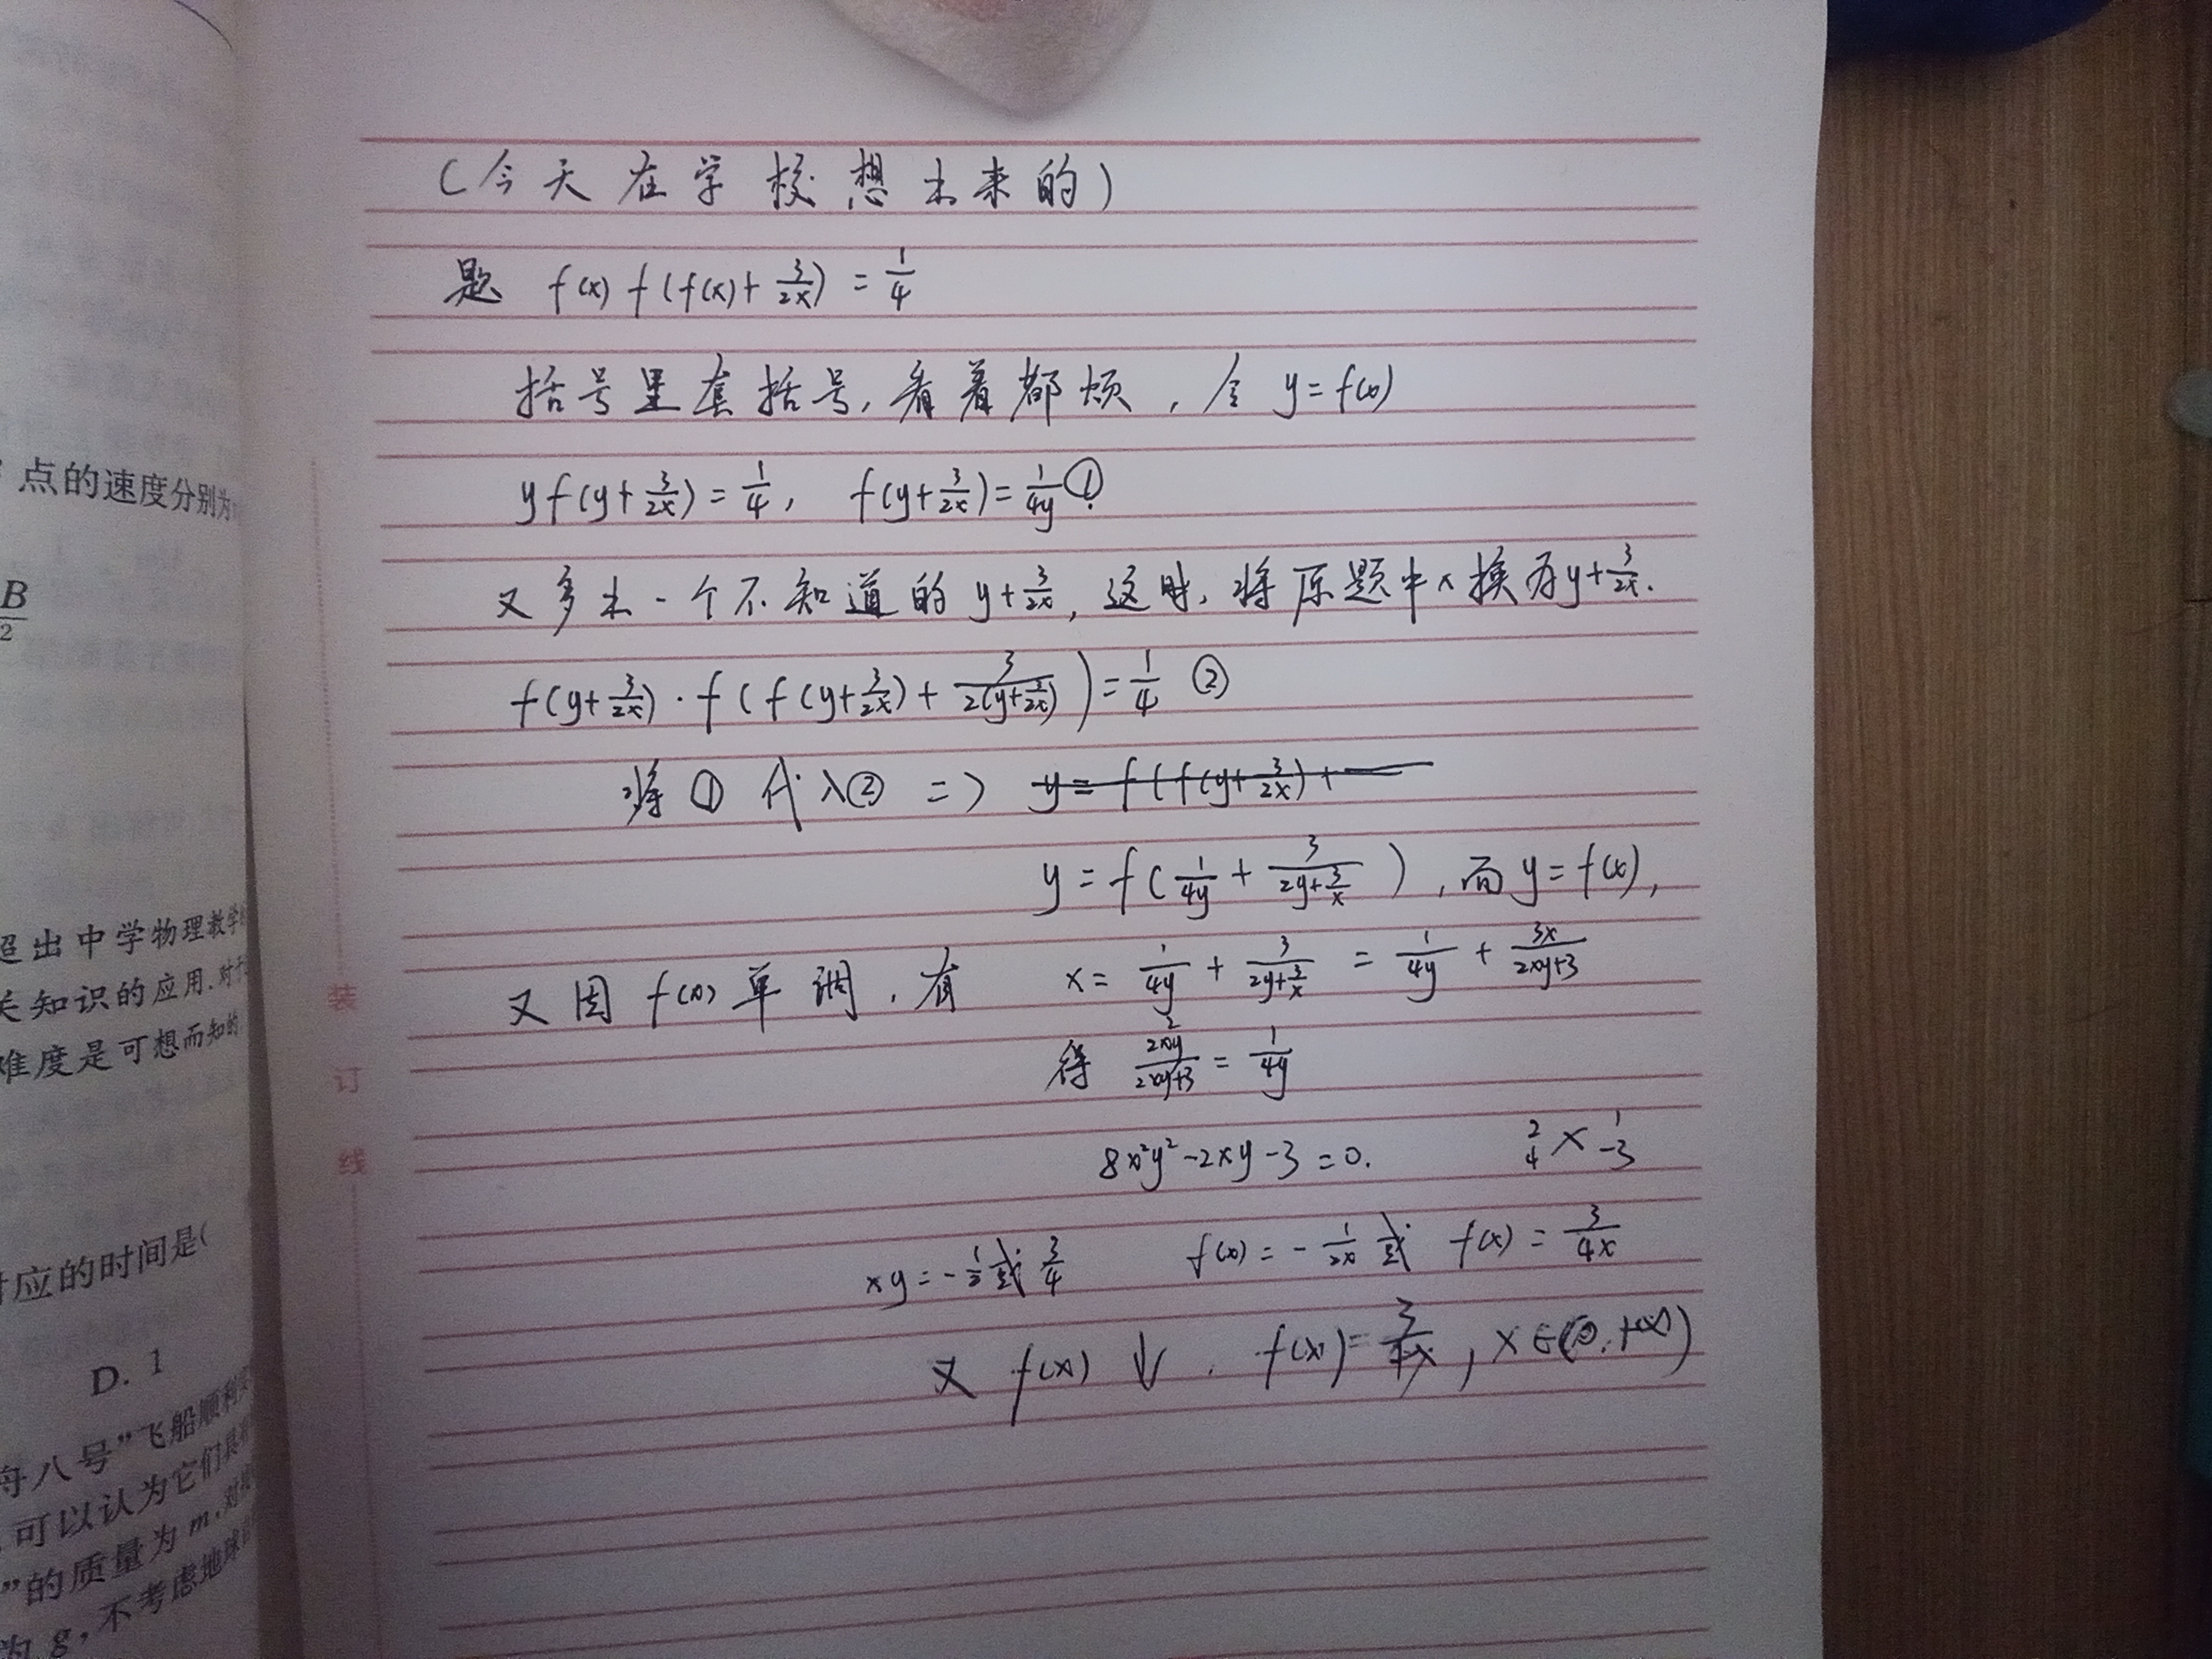 (今天在学校想出来的)
题 f(x) f(f(x)+3/2x) = 1/4
括号里套括号,看着都烦,令 y=f(x)
y f(y+3/2x) = 1/4, f(y+3/2x) = 1/4y ①
又多出一个不知道的 y+3/2x, 这时,将原题中x换为y+3/2x.
f(y+3/2x)·f(f(y+3/2x)+3/2(y+3/2x)) = 1/4 ②
将①代入② => y=f(f(y+3/2x)+
y = f(1/4y + 3/(2y+3/x)), 而 y=f(x),
又因 f(x) 单调,有 x = 1/4y + 3/(2y+3/x) = 1/4y + 3x/(2xy+3)
得 2x²y/(2xy+3) = 1/4y
8x²y²-2xy-3=0. 2 4 × 1 -3
xy=-1/2或3/4 f(x)=-1/2x 或 f(x)=3/4x
又 f(x)↓. f(x)=3/4x, x∈(0,+∞)
点的速度分别为
B
2
超出中学物理教学
关知识的应用.对于
难度是可想而知的
装
订
线
对应的时间是(
D. 1
舟八号”飞船顺利
可以认为它们具
”的质量为m,对
为g,不考虑地球